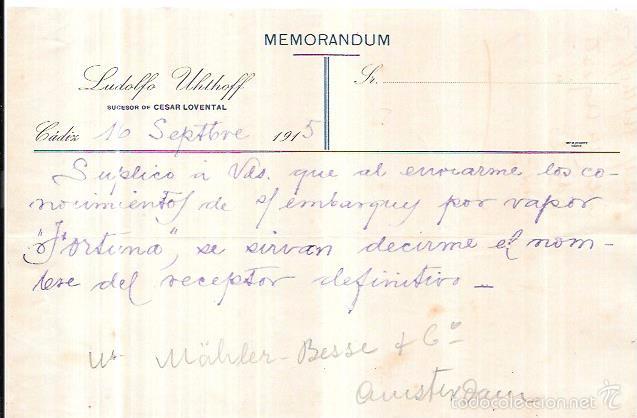 MEMORANDUM
Ludolfo Uhthoff
SUCESOR DE CESAR LOVENTAL
Sr.
Cádiz 16 Septbre 1915
Suplico á Vds. que al enviarme los co-
nocimientos de s/ embarques por vapor
"Fortuna", se sirvan decirme el nom-
bre del receptor definitivo _
Mähler-Besse & Cº
Amsterdam
todocoleccion.net